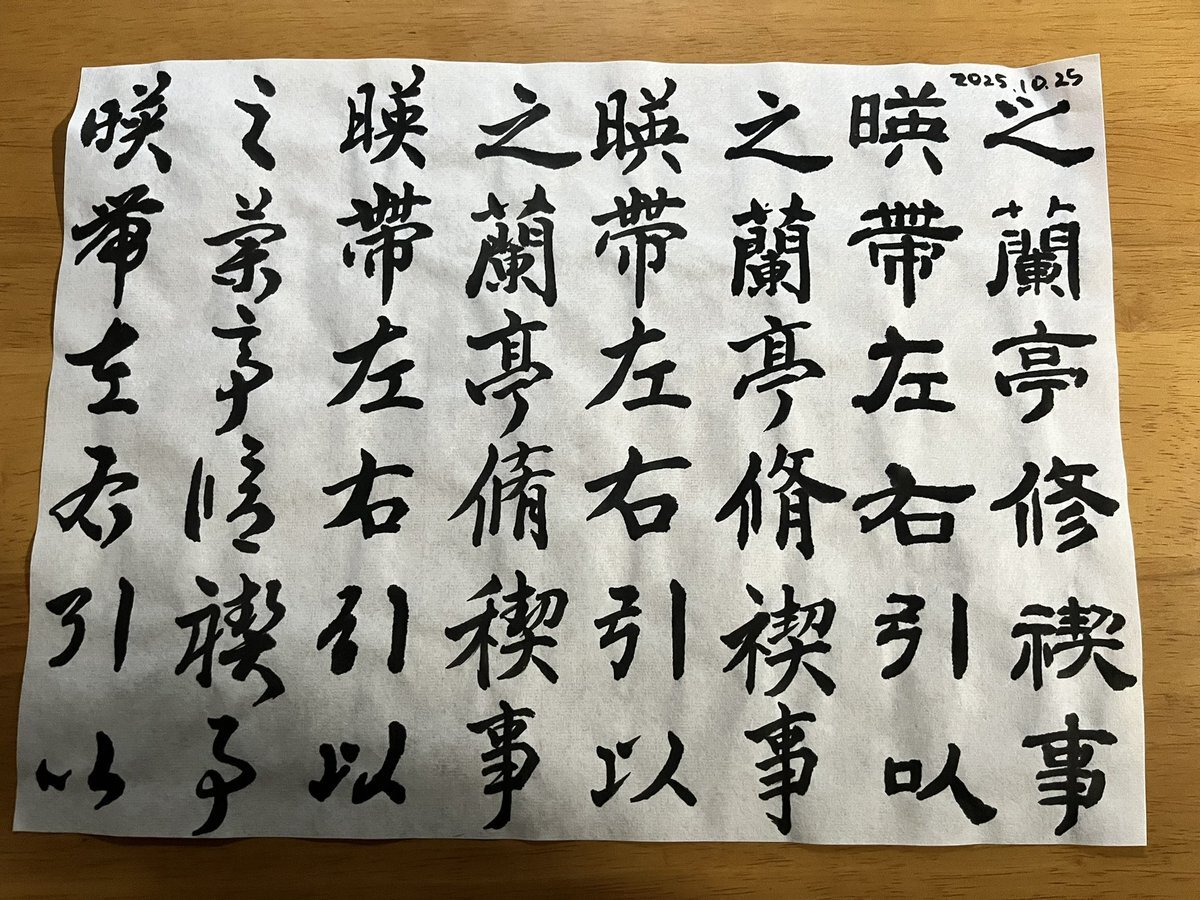 2025.10.25
之蘭亭修禊事
暎帶左右引以
之蘭亭脩禊事
暎帶左右引以
之蘭亭脩禊事
暎帶左右引以
之蘭亭脩禊事
暎帶左右引以